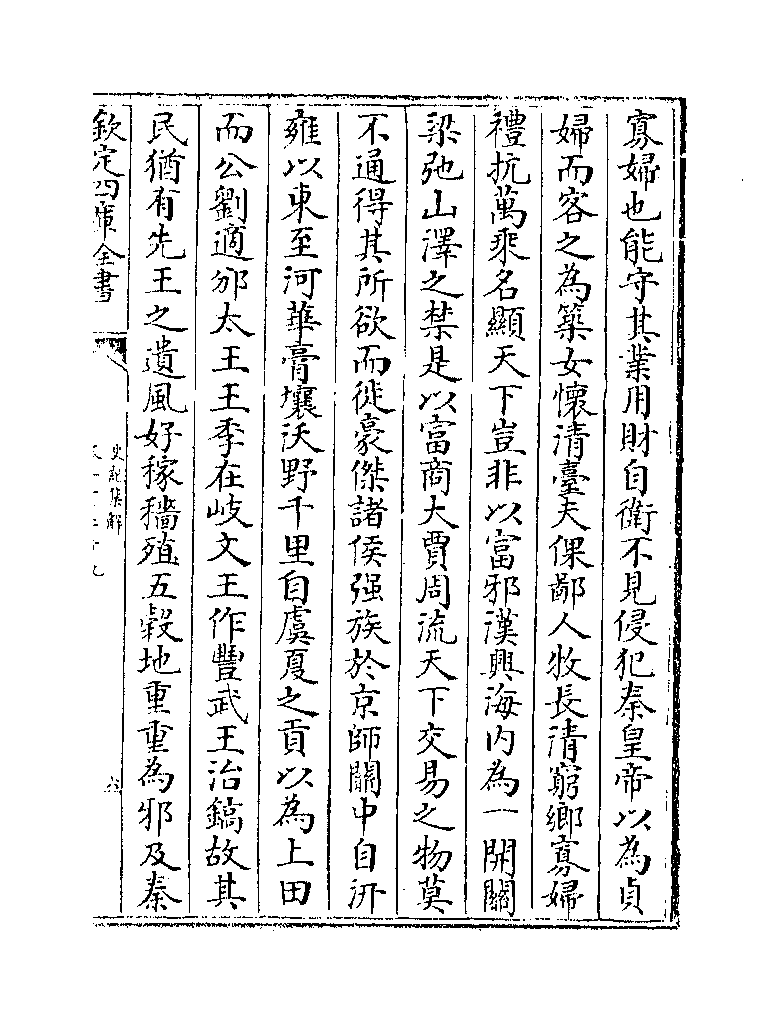 寡婦也能守其業用財自衛不見侵犯秦皇帝以為貞
婦而客之為築女懷清臺夫倮鄙人牧長清窮鄉寡婦
禮抗萬乘名顯天下豈非以富邪漢興海内為一開關
梁弛山澤之禁是以富商大賈周流天下交易之物莫
不通得其所欲而徙豪傑諸侯强族於京師關中自汧
雍以東至河華膏壤沃野千里自虞夏之貢以為上田
而公劉適邠太王王季在岐文王作豐武王治鎬故其
民猶有先王之遺風好稼穡殖五穀地重重為邪及秦
欽定四庫全書
史記集解